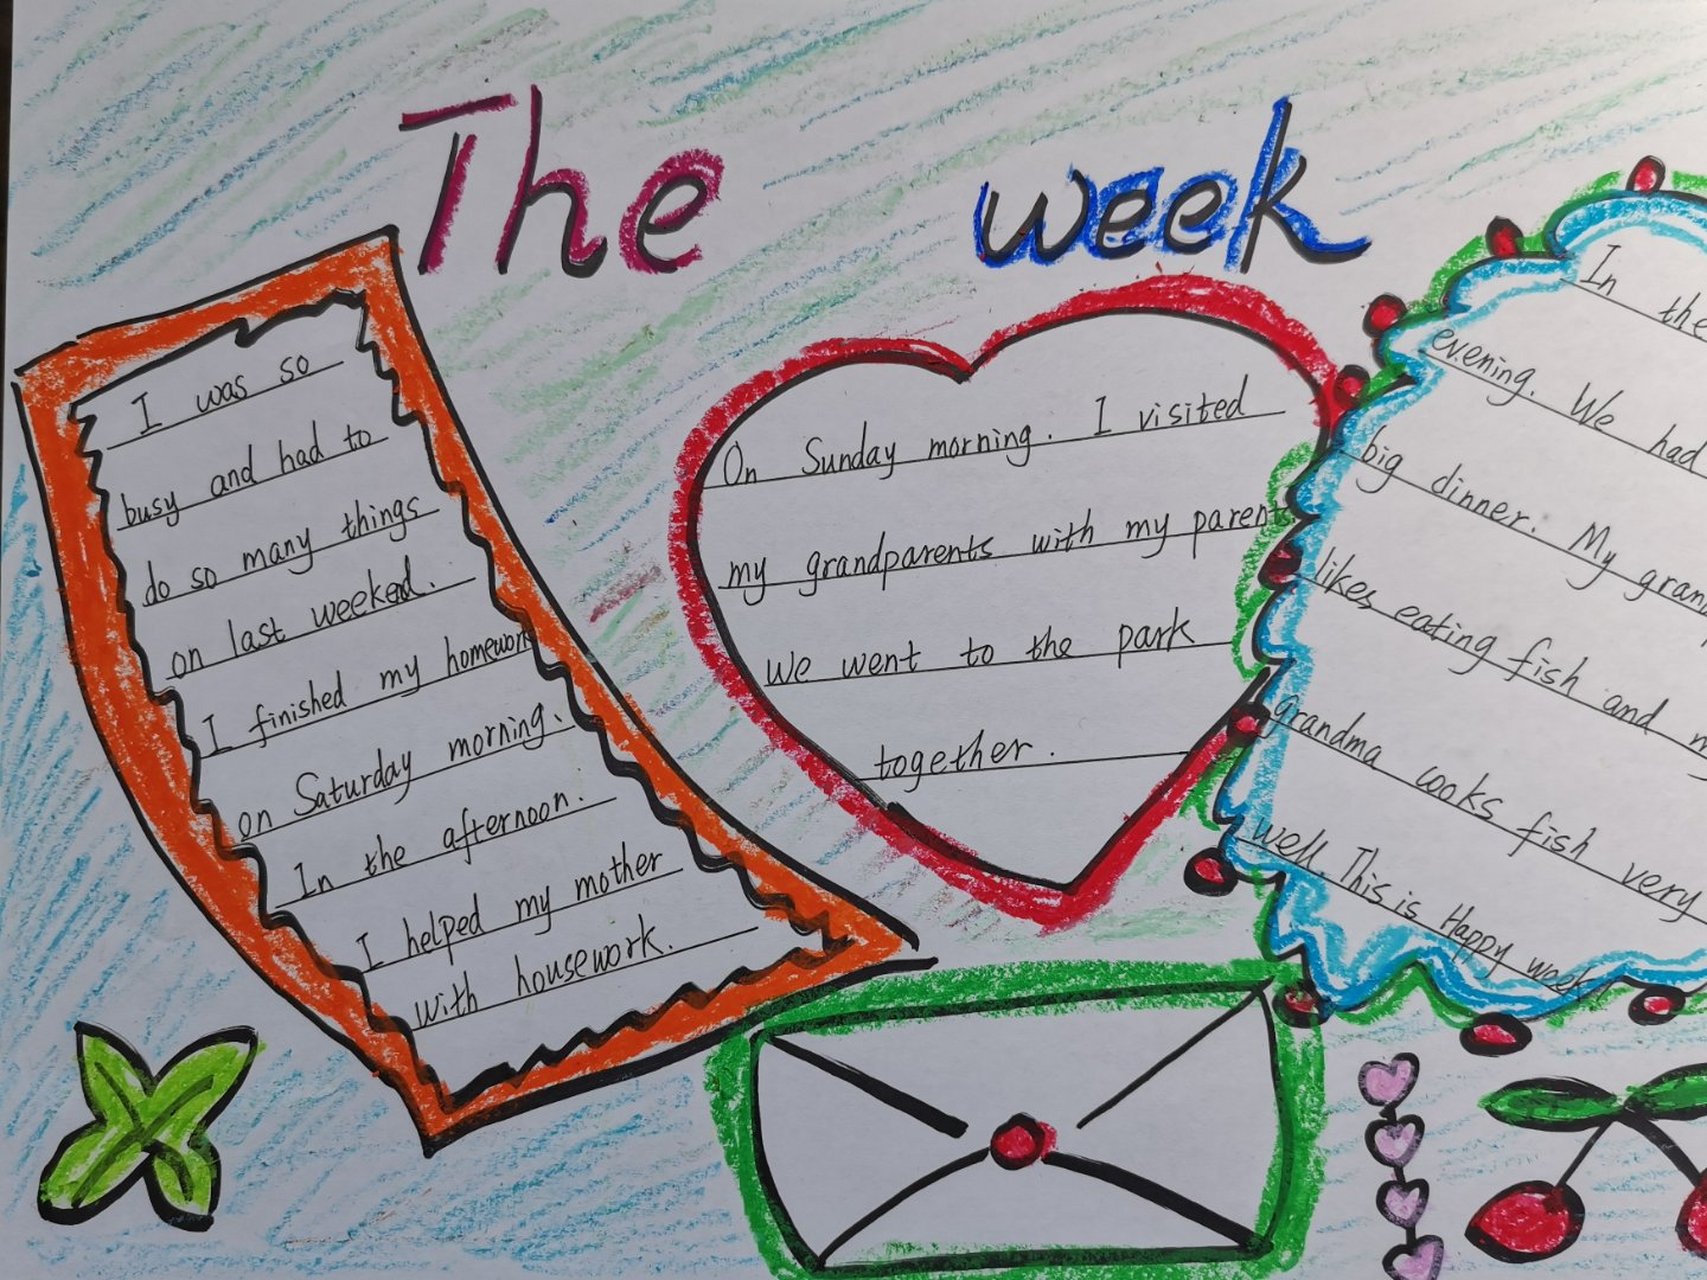 The week
I was so
busy and had to
do so many things
on last weeked.
I finished my homework
on Saturday morning.
In the afternoon.
I helped my mother
with housework.
On Sunday morning. I visited
my grandparents with my parents
We went to the park
together.
In the
evening. We had
big dinner. My
likes eating fish and
grandma cooks fish very
well. This is Happy week.